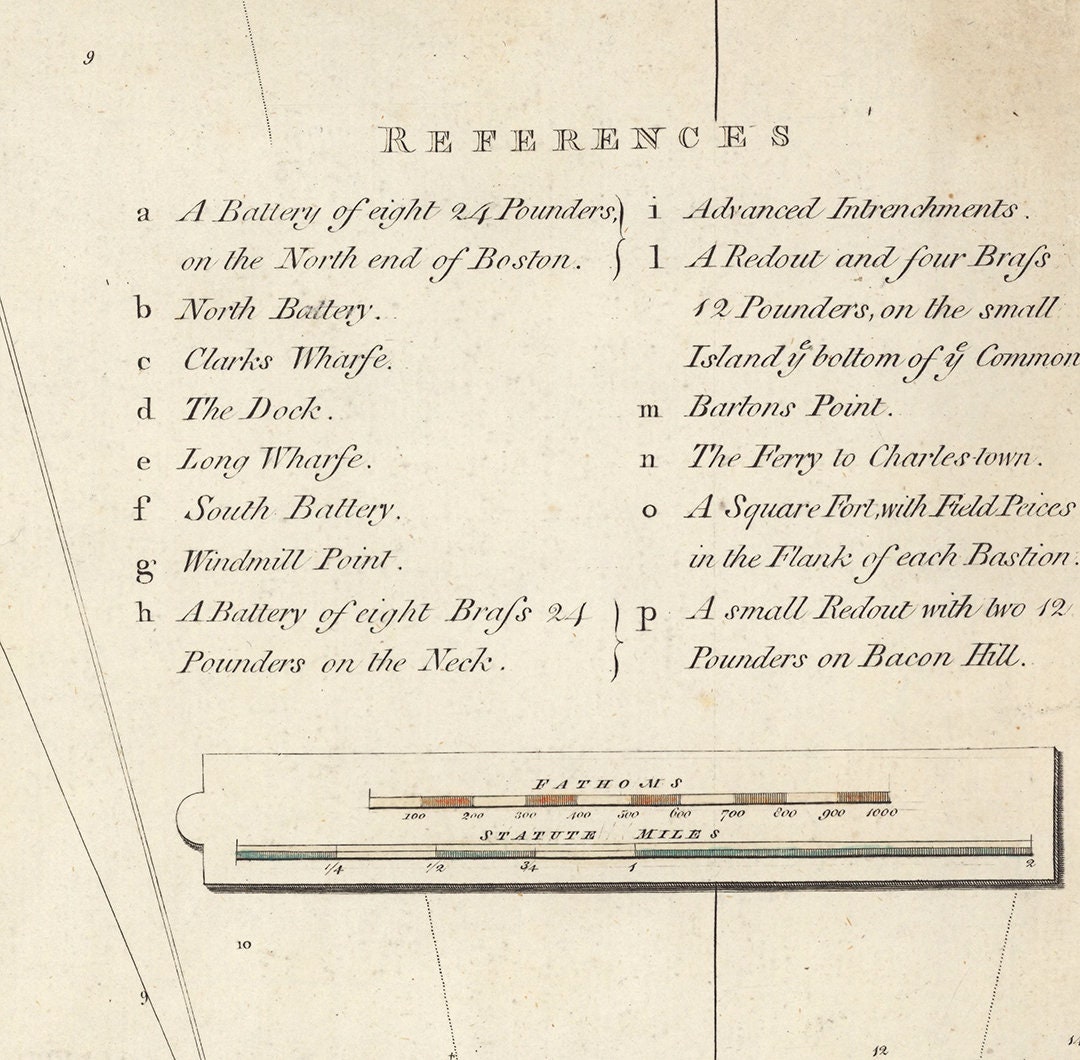 9
REFERENCES
a A Battery of eight 24 Pounders,
on the North end of Boston.
b North Battery.
c Clarks Wharfe.
d The Dock.
e Long Wharfe.
f South Battery.
g Windmill Point.
h A Battery of eight Braſs 24
Pounders on the Neck.
i Advanced Intrenchments.
l A Redout and four Braſs
12 Pounders, on the small
Island yᵉ bottom of yᵉ Common
m Bartons Point.
n The Ferry to Charles-town.
o A Square Fort, with Field Peices
in the Flank of each Bastion.
p A small Redout with two 12
Pounders on Bacon Hill.
FATHOMS
100 200 300 400 500 600 700 800 900 1000
STATUTE MILES
1/4 1/2 34 1 2
10
9
12